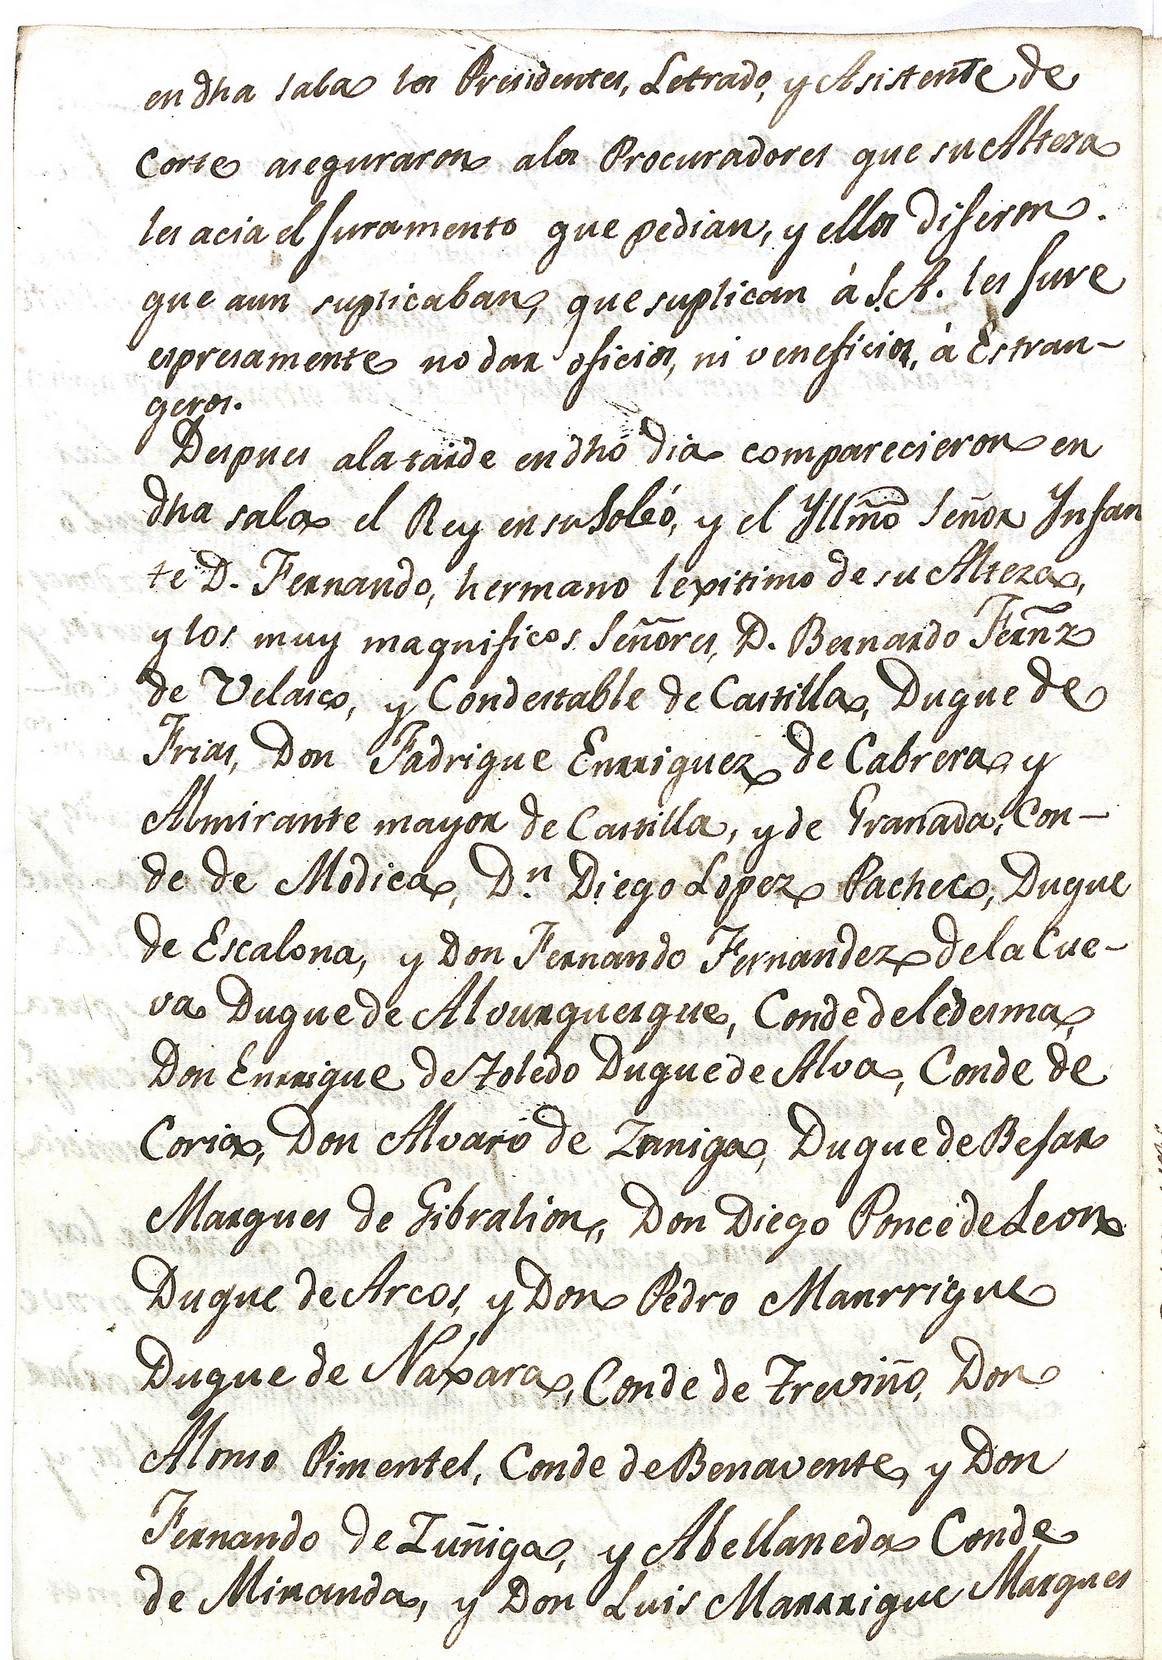 en dha sala los Presidentes, Letrado, y Asistente de
Corte aseguraron alos Procuradores que su Alteza
les acia el Juramento que pedian, y ellos diseron.
que aun suplicaban, que suplican á S.A. les Jure
espresamente no dar oficios, ni veneficios, á Estran-
geros.
Despues ala tarde en dhó dia comparecieron en
dha sala el Rey en su Soléó, y el Yllmô Señor Ynfan
te D. Fernando, hermano lexitimo de su Alteza,
y los muy magnificos Señores, D. Bernardo Fernz
de Velasco, y Condestable de Castilla, Duque de
Frias, Don Fadrique Enrriquez de Cabrera, y
Almirante mayor de Castilla, y de Granada, Con-
de de Modica, Dn. Diego Lopez Pacheco, Duque
de Escalona, y Don Fernando Fernandez de la Cue-
va Duque de Alvurquerque, Conde de ledesma,
Don Enrrique de Toledo Duque de Alva, Conde de
Coria, Don Alvaro de Zuniga, Duque de Besar
Marques de Gibralion, Don Diego Ponce de Leon
Duque de Arcos, y Don Pedro Manrrique
Duque de Náxara, Conde de Treviño, Don
Alonso Pimentel, Conde de Benavente, y Don
Fernando de Zuñiga, y Abellaneda Conde
de Miranda, y Don Luis Manrrique Marques